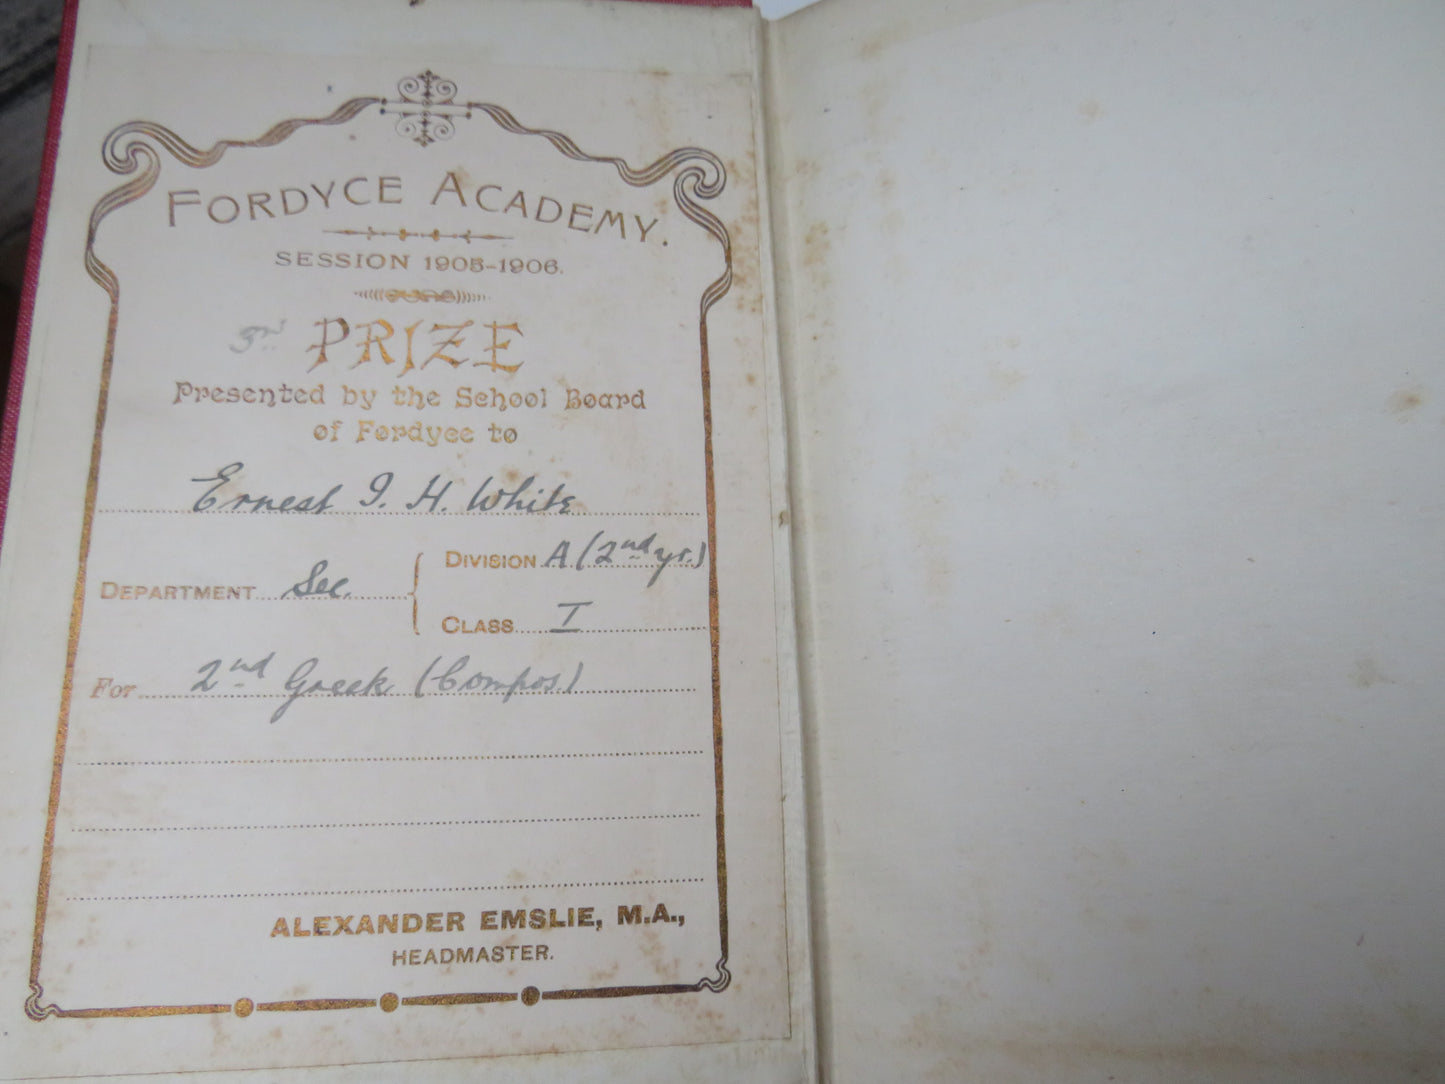 FORDYCE ACADEMY.
SESSION 1905-1906.
3rd PRIZE
Presented by the School Board
of Fordyce to
Ernest I. H. White
DEPARTMENT Sec. { DIVISION A (2nd yr.)
CLASS I
For 2nd Greek (Compos.)
ALEXANDER EMSLIE, M.A.,
HEADMASTER.